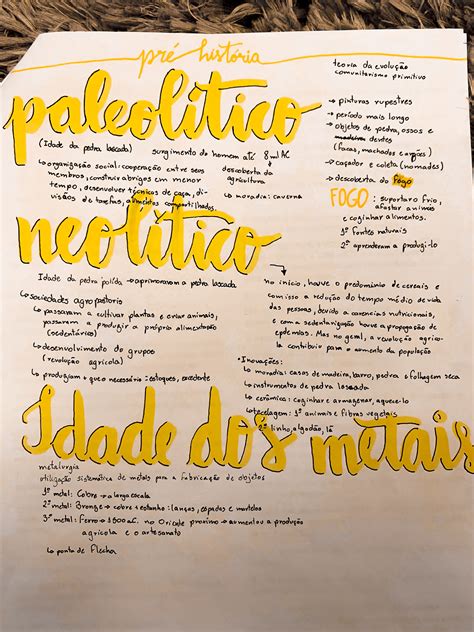 pré história
teoria da evolução
comunitarismo primitivo
paleolítico
(Idade da pedra lascada) surgimento do homem até 8 mil AC
↳ organização social: cooperação entre seus
membros, construir abrigos em menor
tempo, desenvolver técnicas de caça, di-
visões de tarefas, alimentos compartilhados.
descoberta da
agricultura
↳ moradia: caverna
→ pinturas rupestres
→ período mais longo
→ objetos de pedra, ossos e
madeira dentes
(facas, machados e arpões)
→ caçador e coleta (nomades)
→ descoberta do fogo
FOGO: suportar o frio,
afastar animais
e cozinhar alimentos.
1º fontes naturais
2º aprenderam a produzi-lo
neolítico
Idade da pedra polida → aprimoraram a pedra lascada
↳ sociedades agropastoris
↳ passaram a cultivar plantas e criar animais,
passaram a produzir a próprio alimento
(sedentários)
↳ desenvolvimento do grupos
(revolução agrícola)
↳ produziam + que o necessário: estoques, excedente
no início, houve o predomínio de cereais e
com isso a redução do tempo médio de vida
das pessoas, devido a carencias nutricionais,
e com a sedentarização houve a propagação de
epidemias. Mas no geral, a revolução agríco-
la contribuiu para o aumento da população
• Inovações:
↳ moradia: casas de madeira, barro, pedra e folhagem seca
↳ instrumentos de pedra lascada
↳ cerâmica: cozinhar e armazenar, aquece-lo
↳ tecelagem: 1º animais e fibras vegetais
2º linho, algodão, lã
Idade dos metais
metalurgia
utilização sistemática de metais para a fabricação de objetos
1º metal: Cobre → a larga escala
2º metal: Bronze → cobre + estanho: lanças, espadas e martelos
3º metal: Ferro → 1500 a.C. no Oriente proximo → aumentou a produção
agrícola e o artesanato
↳ ponta de flecha